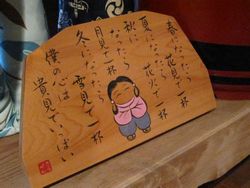 春になったら
花見て一杯
夏になったら
花火で一杯
秋になったら
月見て一杯
冬になったら
雪見て一杯
僕の心は
貴見ていっぱい